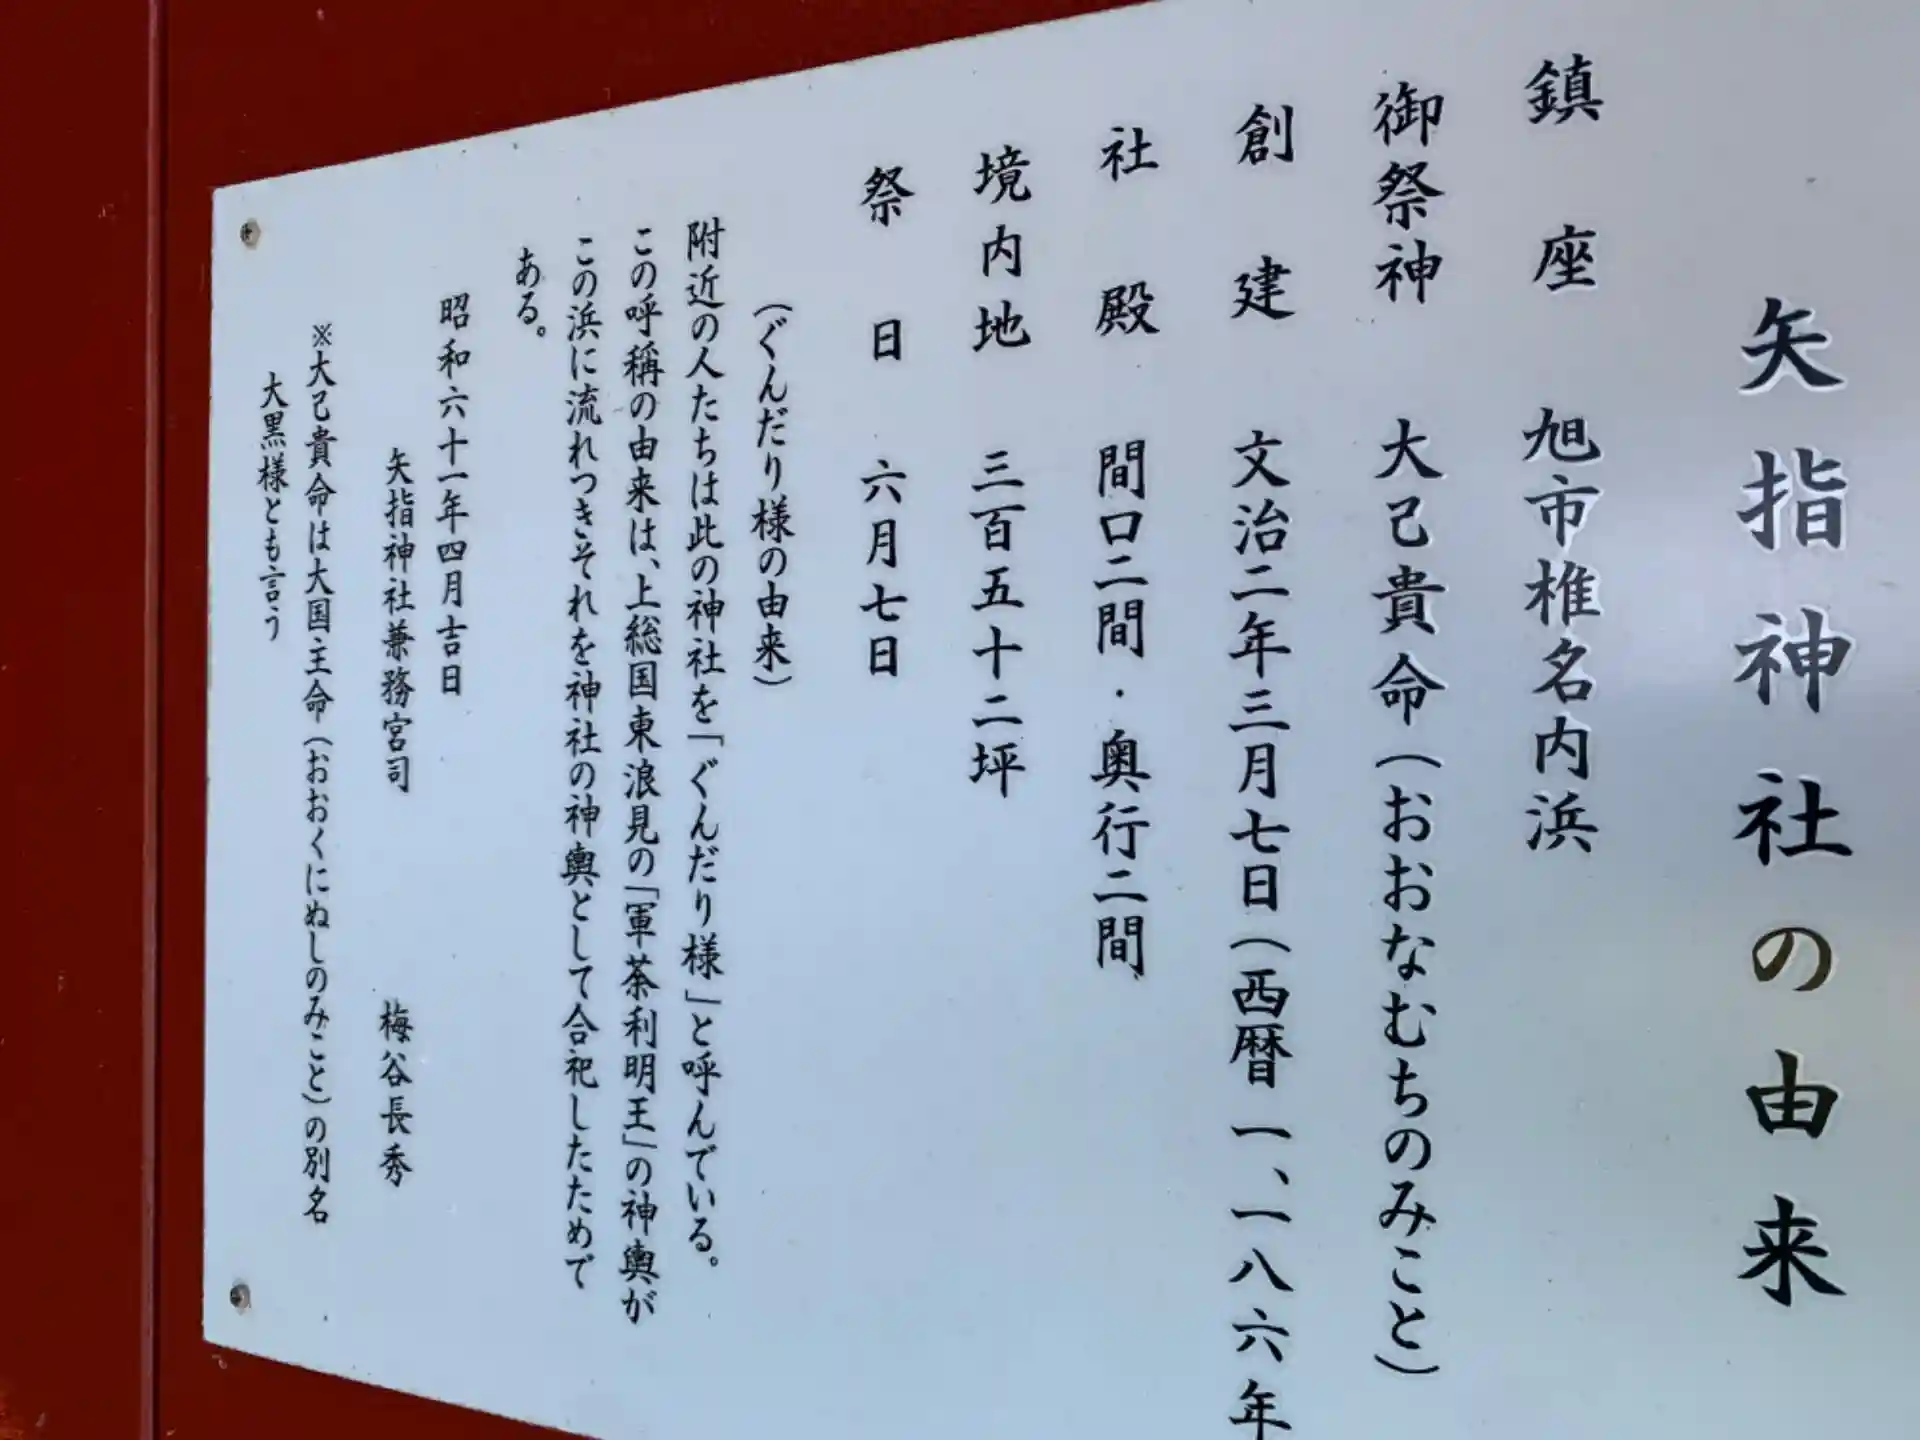 矢指神社の由来
鎮座 旭市椎名内浜
御祭神 大己貴命(おおなむちのみこと)
創建 文治二年三月七日(西暦一、一八六年
社殿 間口二間・奥行二間
境内地 三百五十二坪
祭日 六月七日
(ぐんだり様の由来)
附近の人たちは此の神社を「ぐんだり様」と呼んでいる。
この呼称の由来は、上総国東浪見の「軍茶利明王」の神輿が
この浜に流れつきそれを神社の神輿として合祀したためで
ある。
昭和六十一年四月吉日
矢指神社兼務宮司 梅谷長秀
※大己貴命は大国主命(おおくにぬしのみこと)の別名
大黒様とも言う